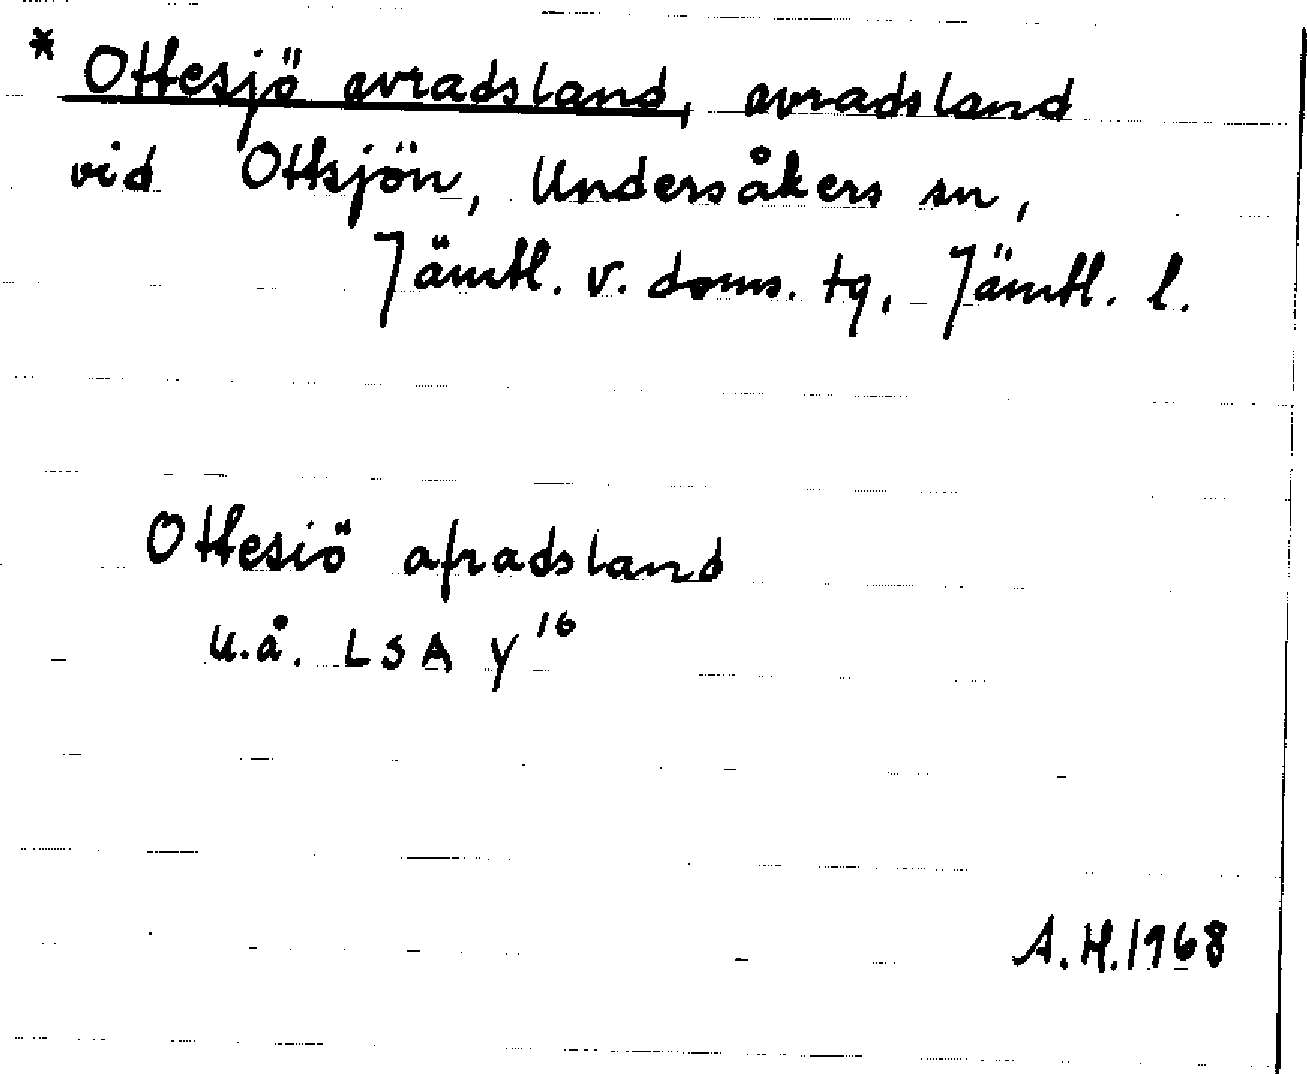 * Ottesjö avradsland, avradsland
vid Ottsjön, Undersåkers sn,
Jämtl. v. doms. tg, Jämtl. l.
Ottesiö afradsland
u.å. LSA y¹⁶
A.H. 1968